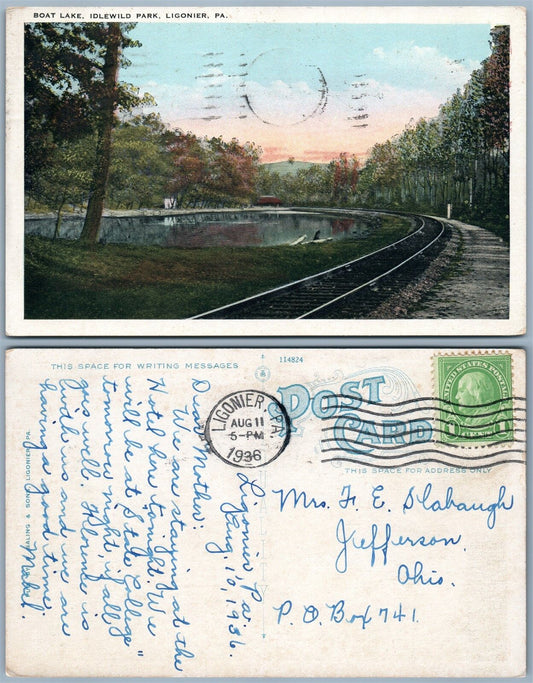 BOAT LAKE, IDLEWILD PARK, LIGONIER, PA.
THIS SPACE FOR WRITING MESSAGES
114824
POST CARD
THIS SPACE FOR ADDRESS ONLY
LIGONIER, PA.
AUG 11
5-PM
1936
UNITED STATES POSTAGE
1 CENT 1
Ligonier, Pa.
Aug. 10, 1936.
Dear Mother:
We are staying at the
Hotel here tonight. We
will be at "State College"
tomorrow night, if all
goes well. is
with us and we are
having a good time.
Mabel.
& SON, LIGONIER, PA.
Mrs. F. E. Slabaugh
Jefferson,
Ohio.
P. O. Box 741.